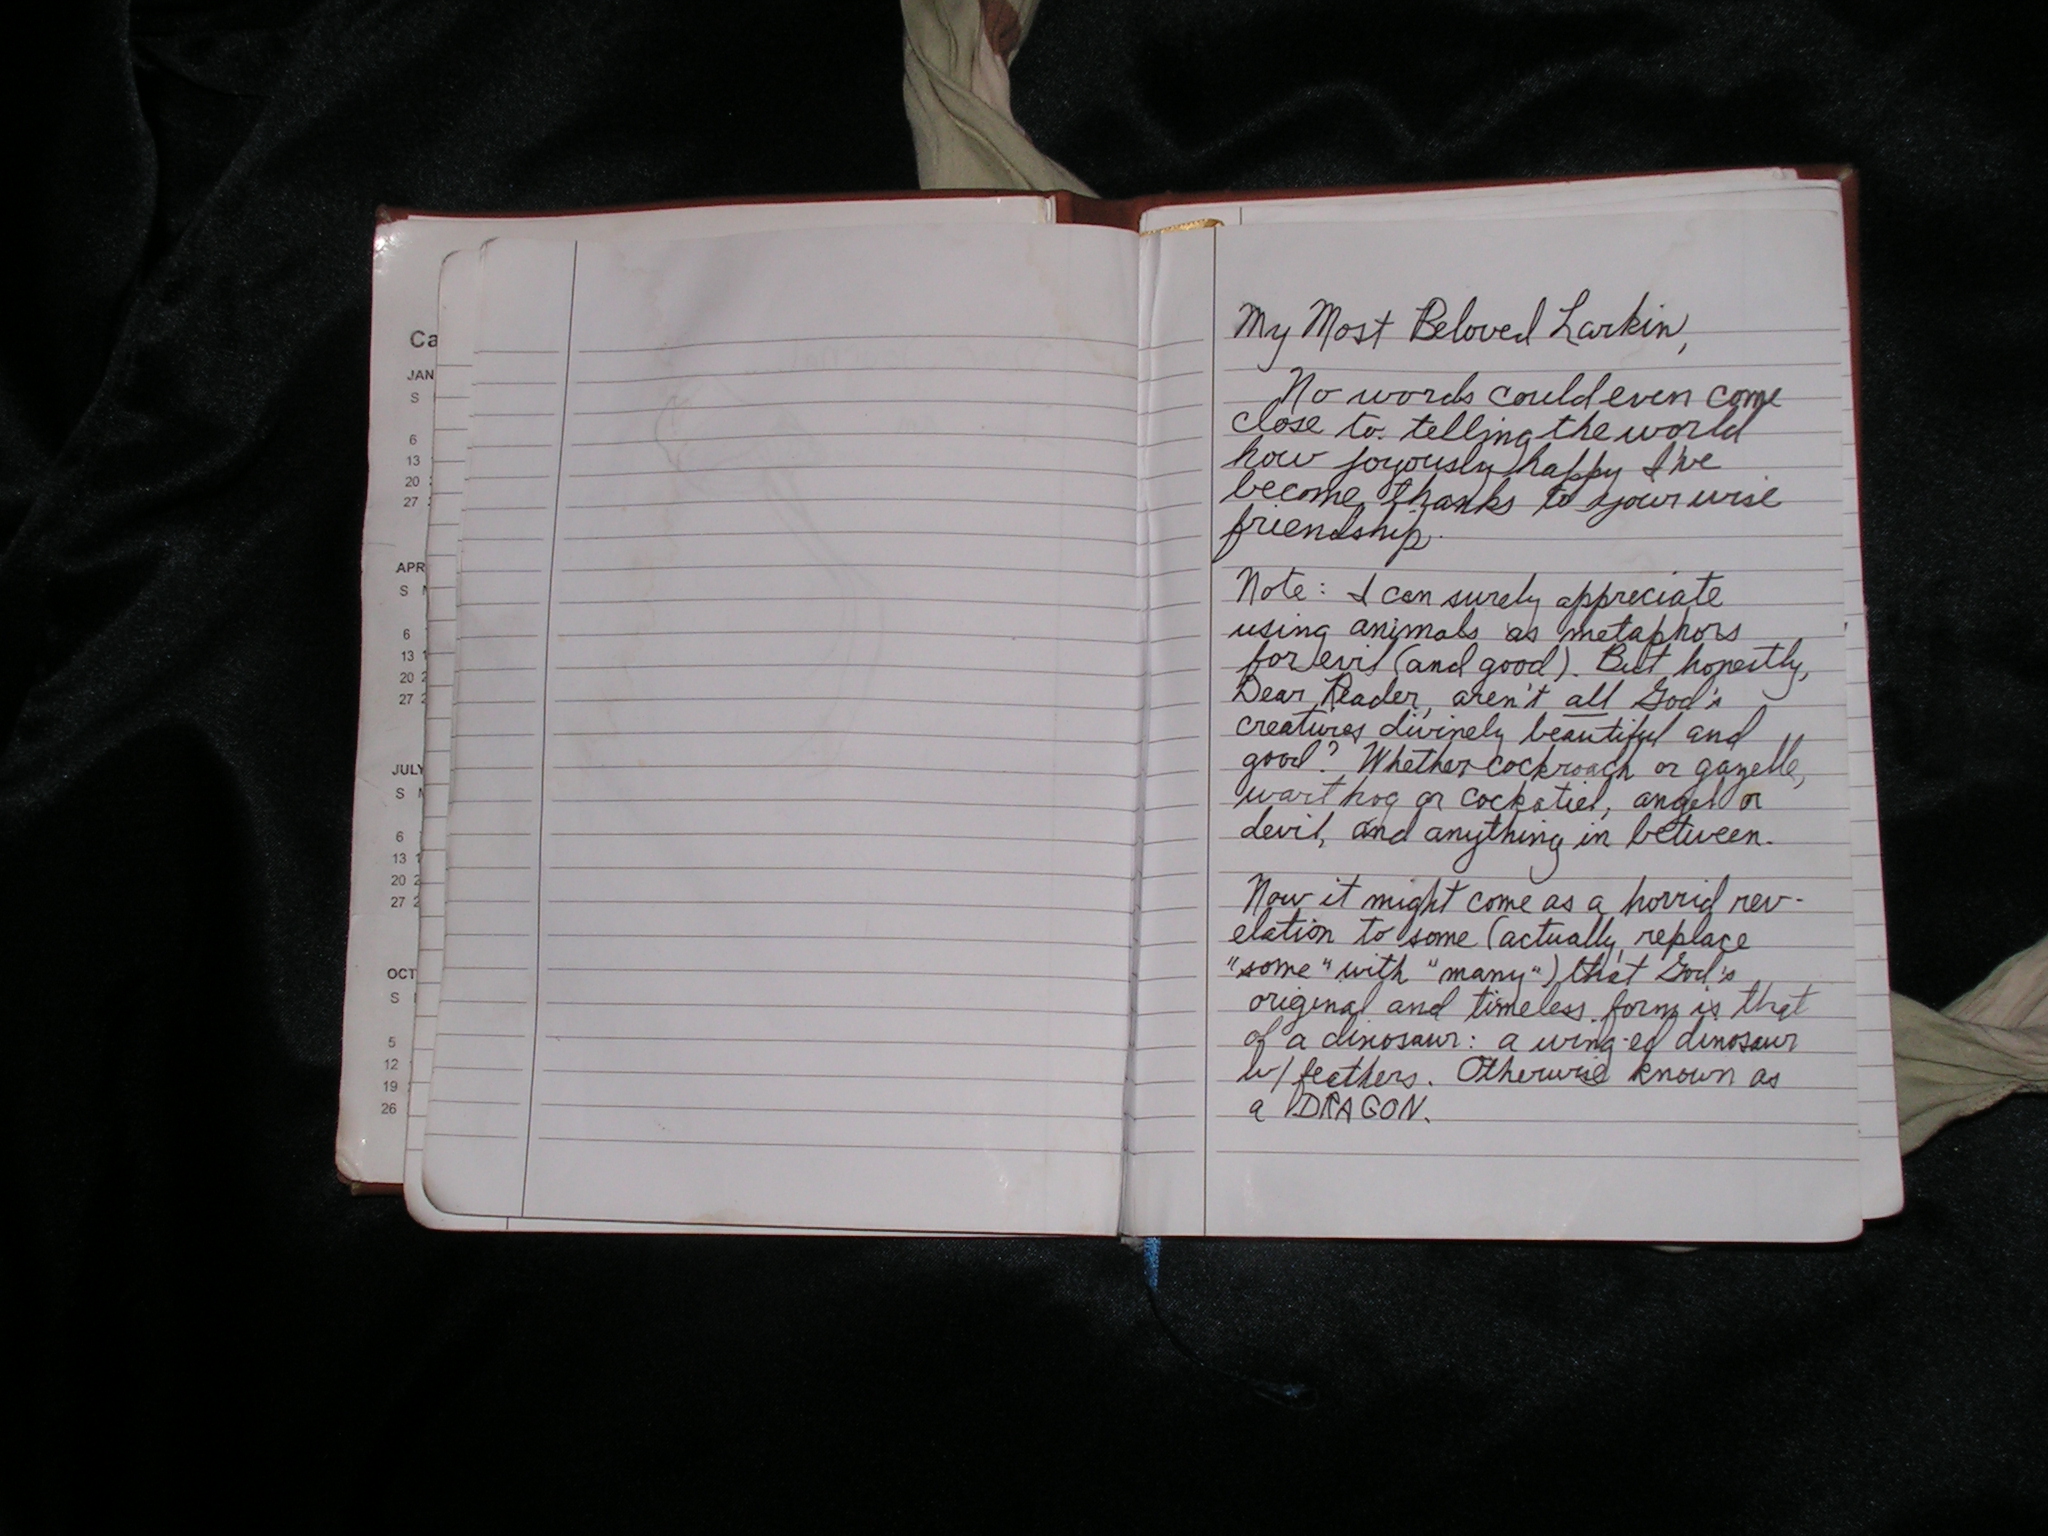 Ca
JAN
S
6
13
20
27
APR
S
6
13
20
27
JULY
S
6
13
20
27
OCT
S
5
12
19
26
My Most Beloved Larkin,
No words could even come
close to telling the world
how joyously happy I've
become thanks to your wise
friendship.
Note: I can surely appreciate
using animals as metaphors
for evil (and good). But honestly,
Dear Reader, aren't all God's
creatures divinely beautiful and
good? Whether cockroach or gazelle,
warthog or cockatiel, angel or
devil, and anything in between.
Now it might come as a horrid rev-
elation to some (actually, replace
"some" with "many") that God's
original and timeless form is that
of a dinosaur: a wing-ed dinosaur
w/ feathers. Otherwise known as
a DRAGON.